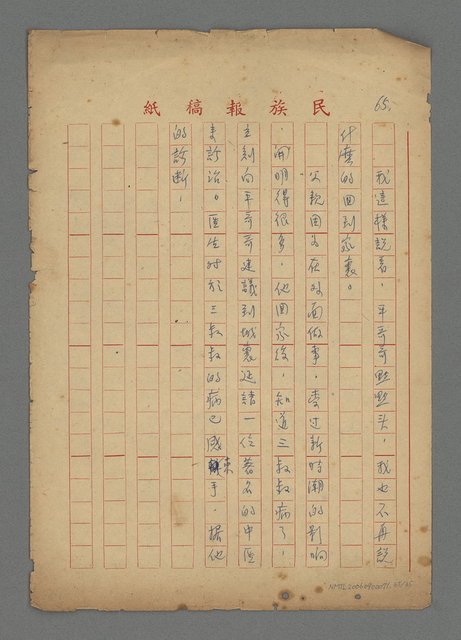 民族報稿紙
65.
我這樣說着，平哥哥點點頭，我也不再說
什麼的回到家裏。
父親因為在外面做事，受过新時潮的影响
，開明得很多，他回家後，知道三叔叔病了，
立刻向平哥哥建議到城裏延請一位著名的中医
來診治。医生对於三叔叔的病已感束手，据他
的診断，
NMTL20060900071